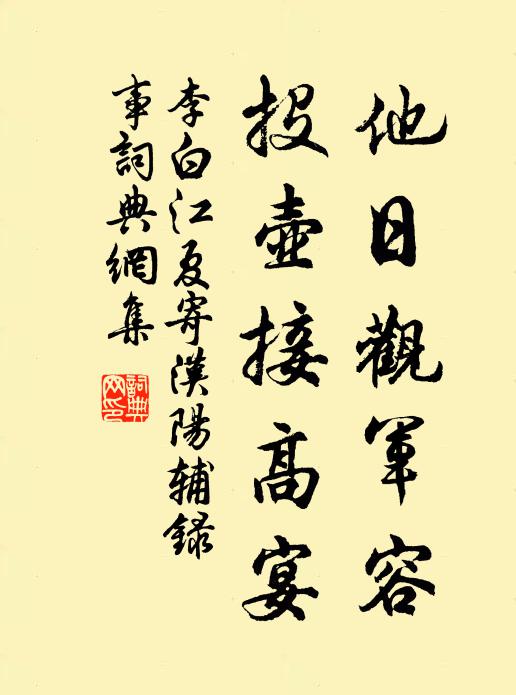 他日觀軍容
投壺接高宴
李白江夏寄漢陽輔錄
事詞典網集
詞典網印